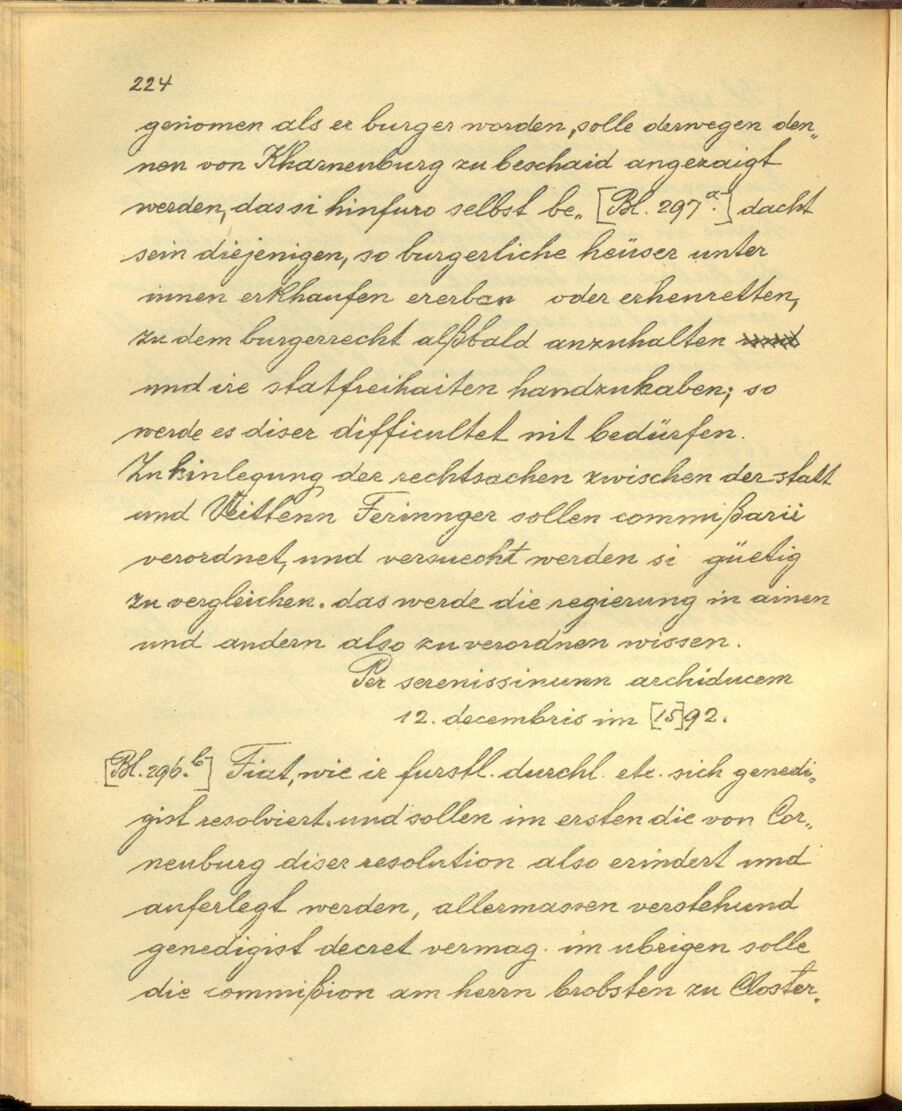 224
genomen als er burger worden, solle derwegen den„
nen von Kharnenburg zu beschaid angezaigt
werden, das si hinfuro selbst be„ [Bl. 297a.] dacht
sein diejenigen, so burgerliche heüser unter
innen erkhaufen ererban oder erhenretten,
zu dem burgerrecht alßbald anzuhalten
und ire statfreihaiten handzuhaben; so
werde es diser difficultet nit bedürfen.
Zu hinlegung der rechtsachen zwischen der statt
und Veitlenn Ferinnger sollen commißarii
verordnet, und versuecht werden si güetig
zu vergleichen. das werde die regierung in ainen
und andern also zu verordnen wissen.
Per serenissimum archiducem
12. decembris im [15]92.
[Bl. 296.b] Fiat, wie ir furstl. durchl. etc. sich genedi„
gist resolviert. und sollen im ersten die von Cor„
neuburg diser resolution also erindert und
auferlegt werden, allermassen verstehund
genedigist decret vermag. im ubrigen solle
die commißion am herrn brobsten zu Closter„